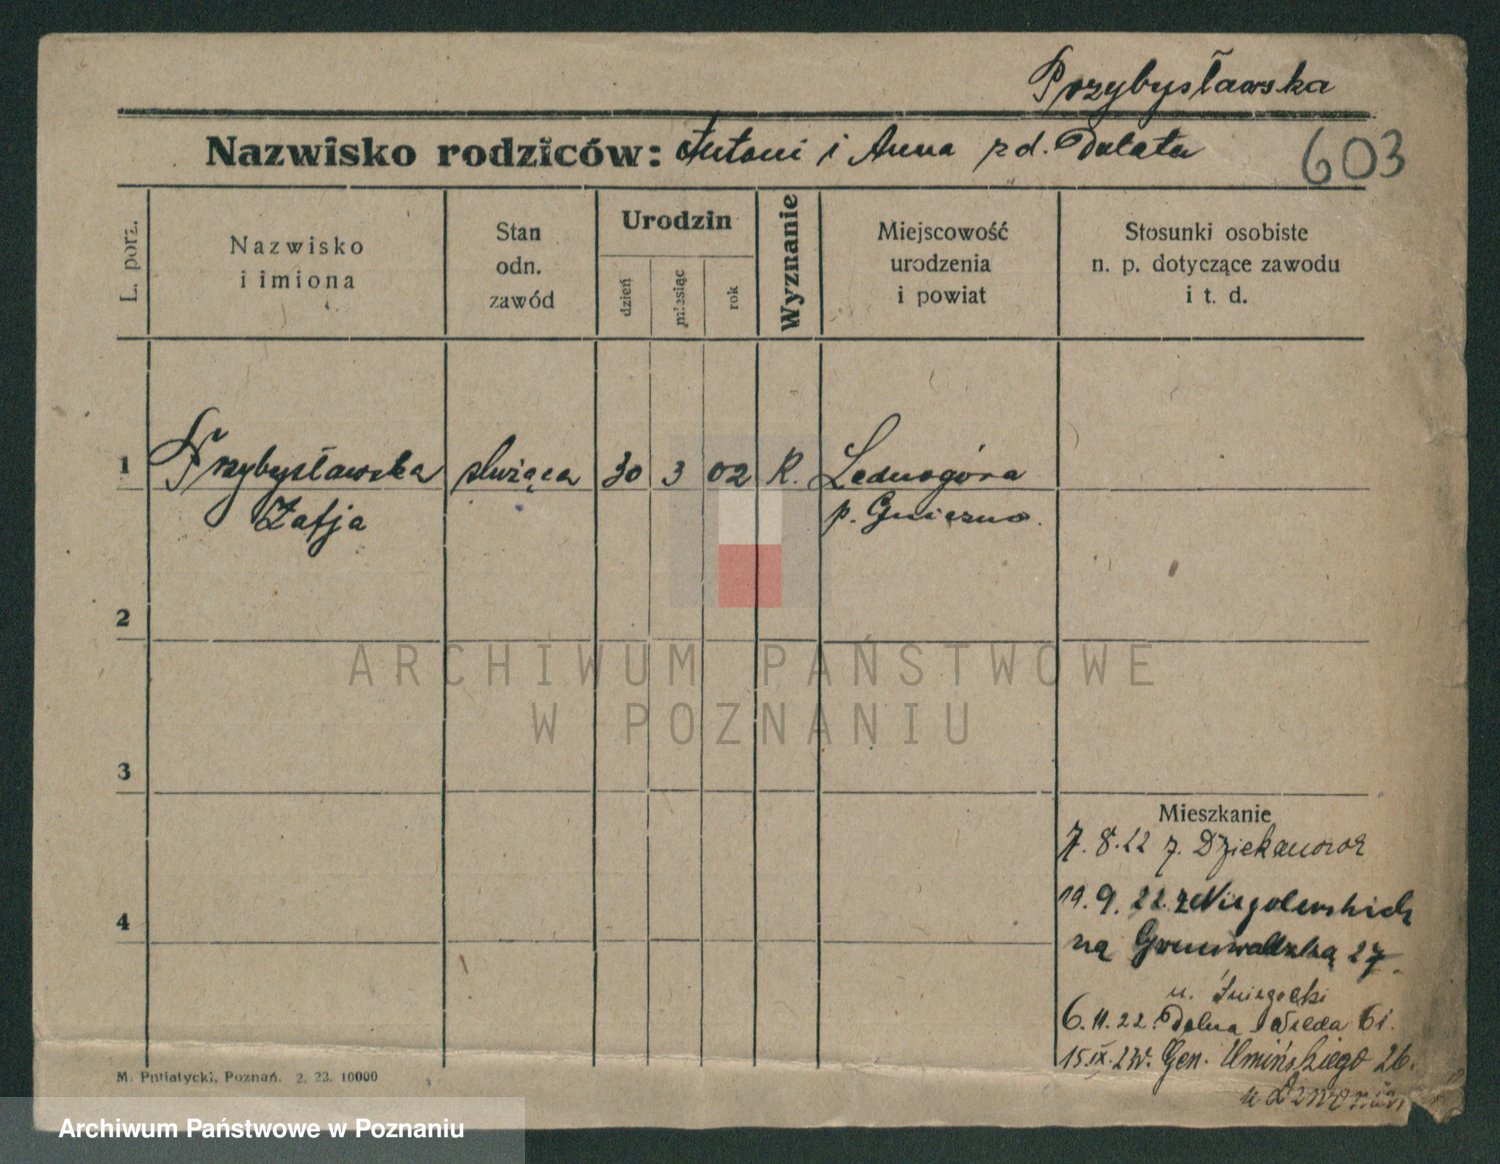 Przybysławska
Nazwisko rodziców: Antoni i Anna zd. Dolata
603
L. porz.
Nazwisko
i imiona
Stan
odn.
zawód
Urodzin
dzień
miesiąc
rok
Wyznanie
Miejscowość
urodzenia
i powiat
Stosunki osobiste
n. p. dotyczące zawodu
i t. d.
1
Przybysławska służąca 30 3 02 R. Lednogóra
Zofja p. Gniezno.
2
ARCHIWUM PAŃSTWOWE
W POZNANIU
3
Mieszkanie
7.8.22 z. Dziekanowic
4
19.9.22 z Niegolewskich
na Grunwaldzką 27.
u. Śniegocki
6.11.22. Dolna Wilda 61.
15.IX. Gen. Umińskiego 26.
u
M. Putiatycki, Poznań. 2. 23. 10000
Archiwum Państwowe w Poznaniu